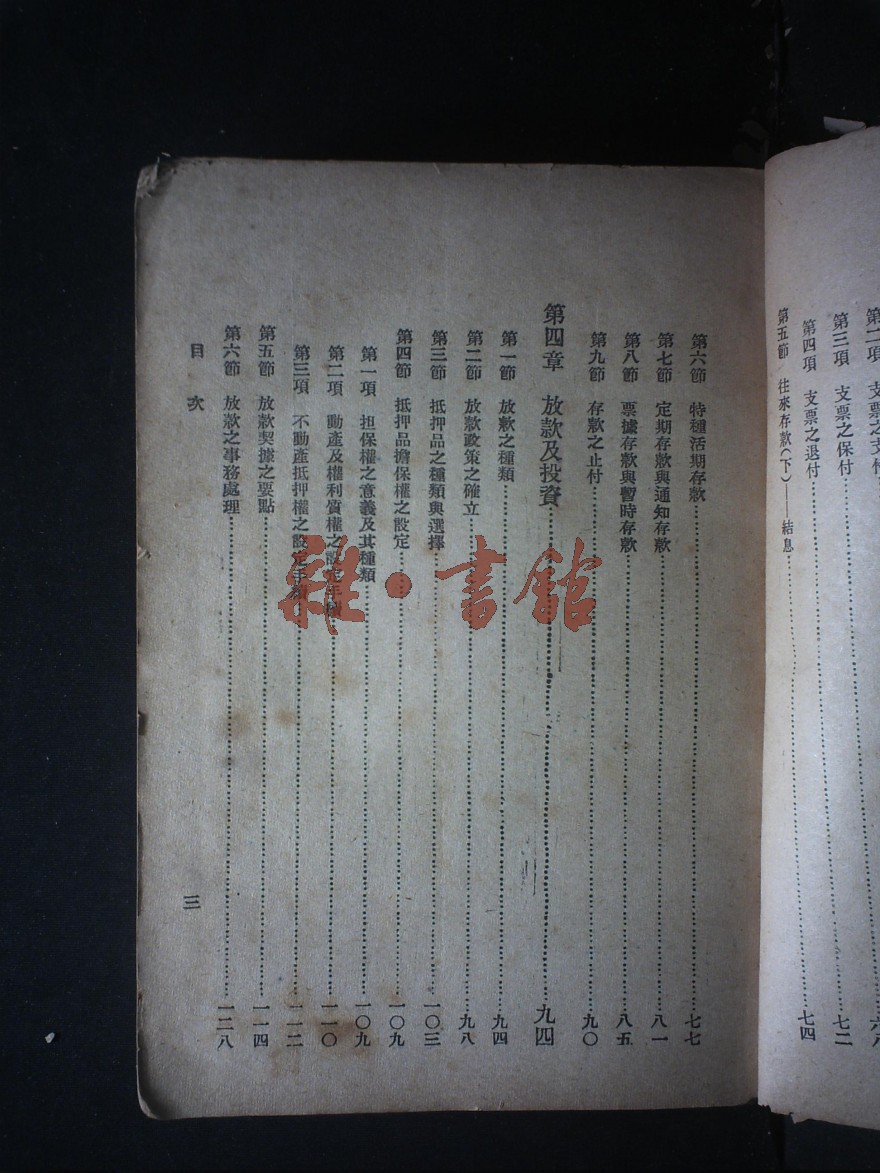 第二項　支票之支付……六八
第三項　支票之保付……七二
第四項　支票之退付……七四
第五節　往來存款(下)——結息……
第六節　特種活期存款……七七
第七節　定期存款與通知存款……八一
第八節　票據存款與暫時存款……八五
第九節　存款之止付……九〇
第四章　放款及投資……九四
第一節　放款之種類……九四
第二節　放款政策之確立……九八
第三節　抵押品之種類與選擇……一〇三
第四節　抵押品擔保權之設定……一〇九
第一項　担保權之意義及其種類……一〇九
第二項　動產及權利質權之設定手續……一一〇
第三項　不動產抵押權之設定手續……一一二
第五節　放款契據之要點……一一四
第六節　放款之事務處理……一二八
目次
三
雜·書館